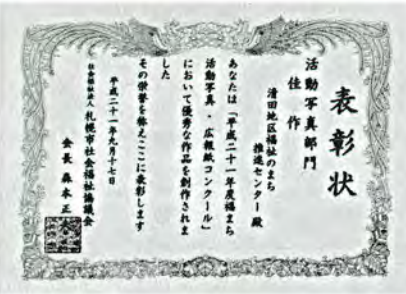 表彰状
活動写真部門
佳作
清田地区福祉のまち
推進センター殿
あなたは「平成二十一年度福まち
活動写真・広報紙コンクール」
において優秀な作品を創作されま
した
その栄誉を称えここに表彰します
平成二十一年九月十七日
社会福祉法人 札幌市社会福祉協議会
会長 森本正